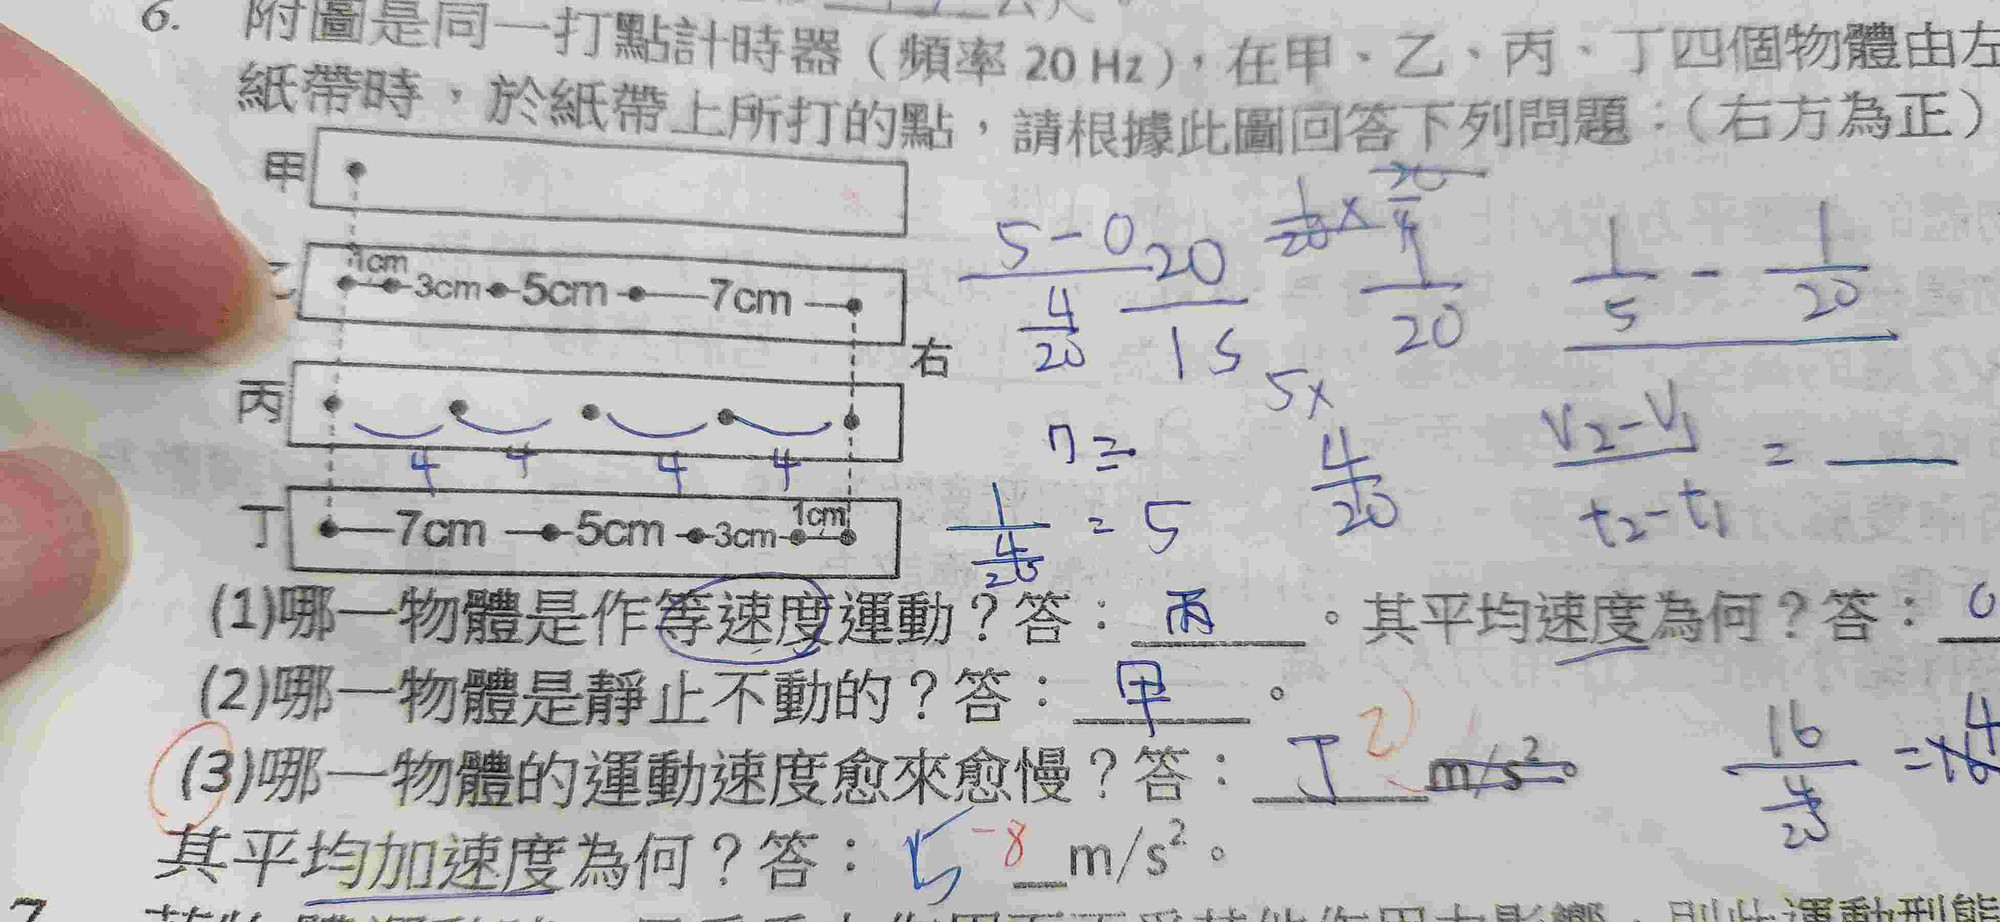 6. 附圖是同一打點計時器（頻率 20 Hz），在甲、乙、丙、丁四個物體由左
紙帶時，於紙帶上所打的點，請根據此圖回答下列問題：（右方為正）
甲
乙 1cm 3cm 5cm 7cm
右
丙
4 4 4 4
丁 7cm 5cm 3cm 1cm
5-0
4/20
20
15
1/20 × 20/4
1/20
1/5 - 1/20
5×
4/20
V2-V1 =
t2-t1
1
4/20 = 5
(1)哪一物體是作等速度運動？答：丙。其平均速度為何？答：0
(2)哪一物體是靜止不動的？答：甲。
(3)哪一物體的運動速度愈來愈慢？答：丁 m/s²。
16
4/20
其平均加速度為何？答：5 -8 m/s²。
7.